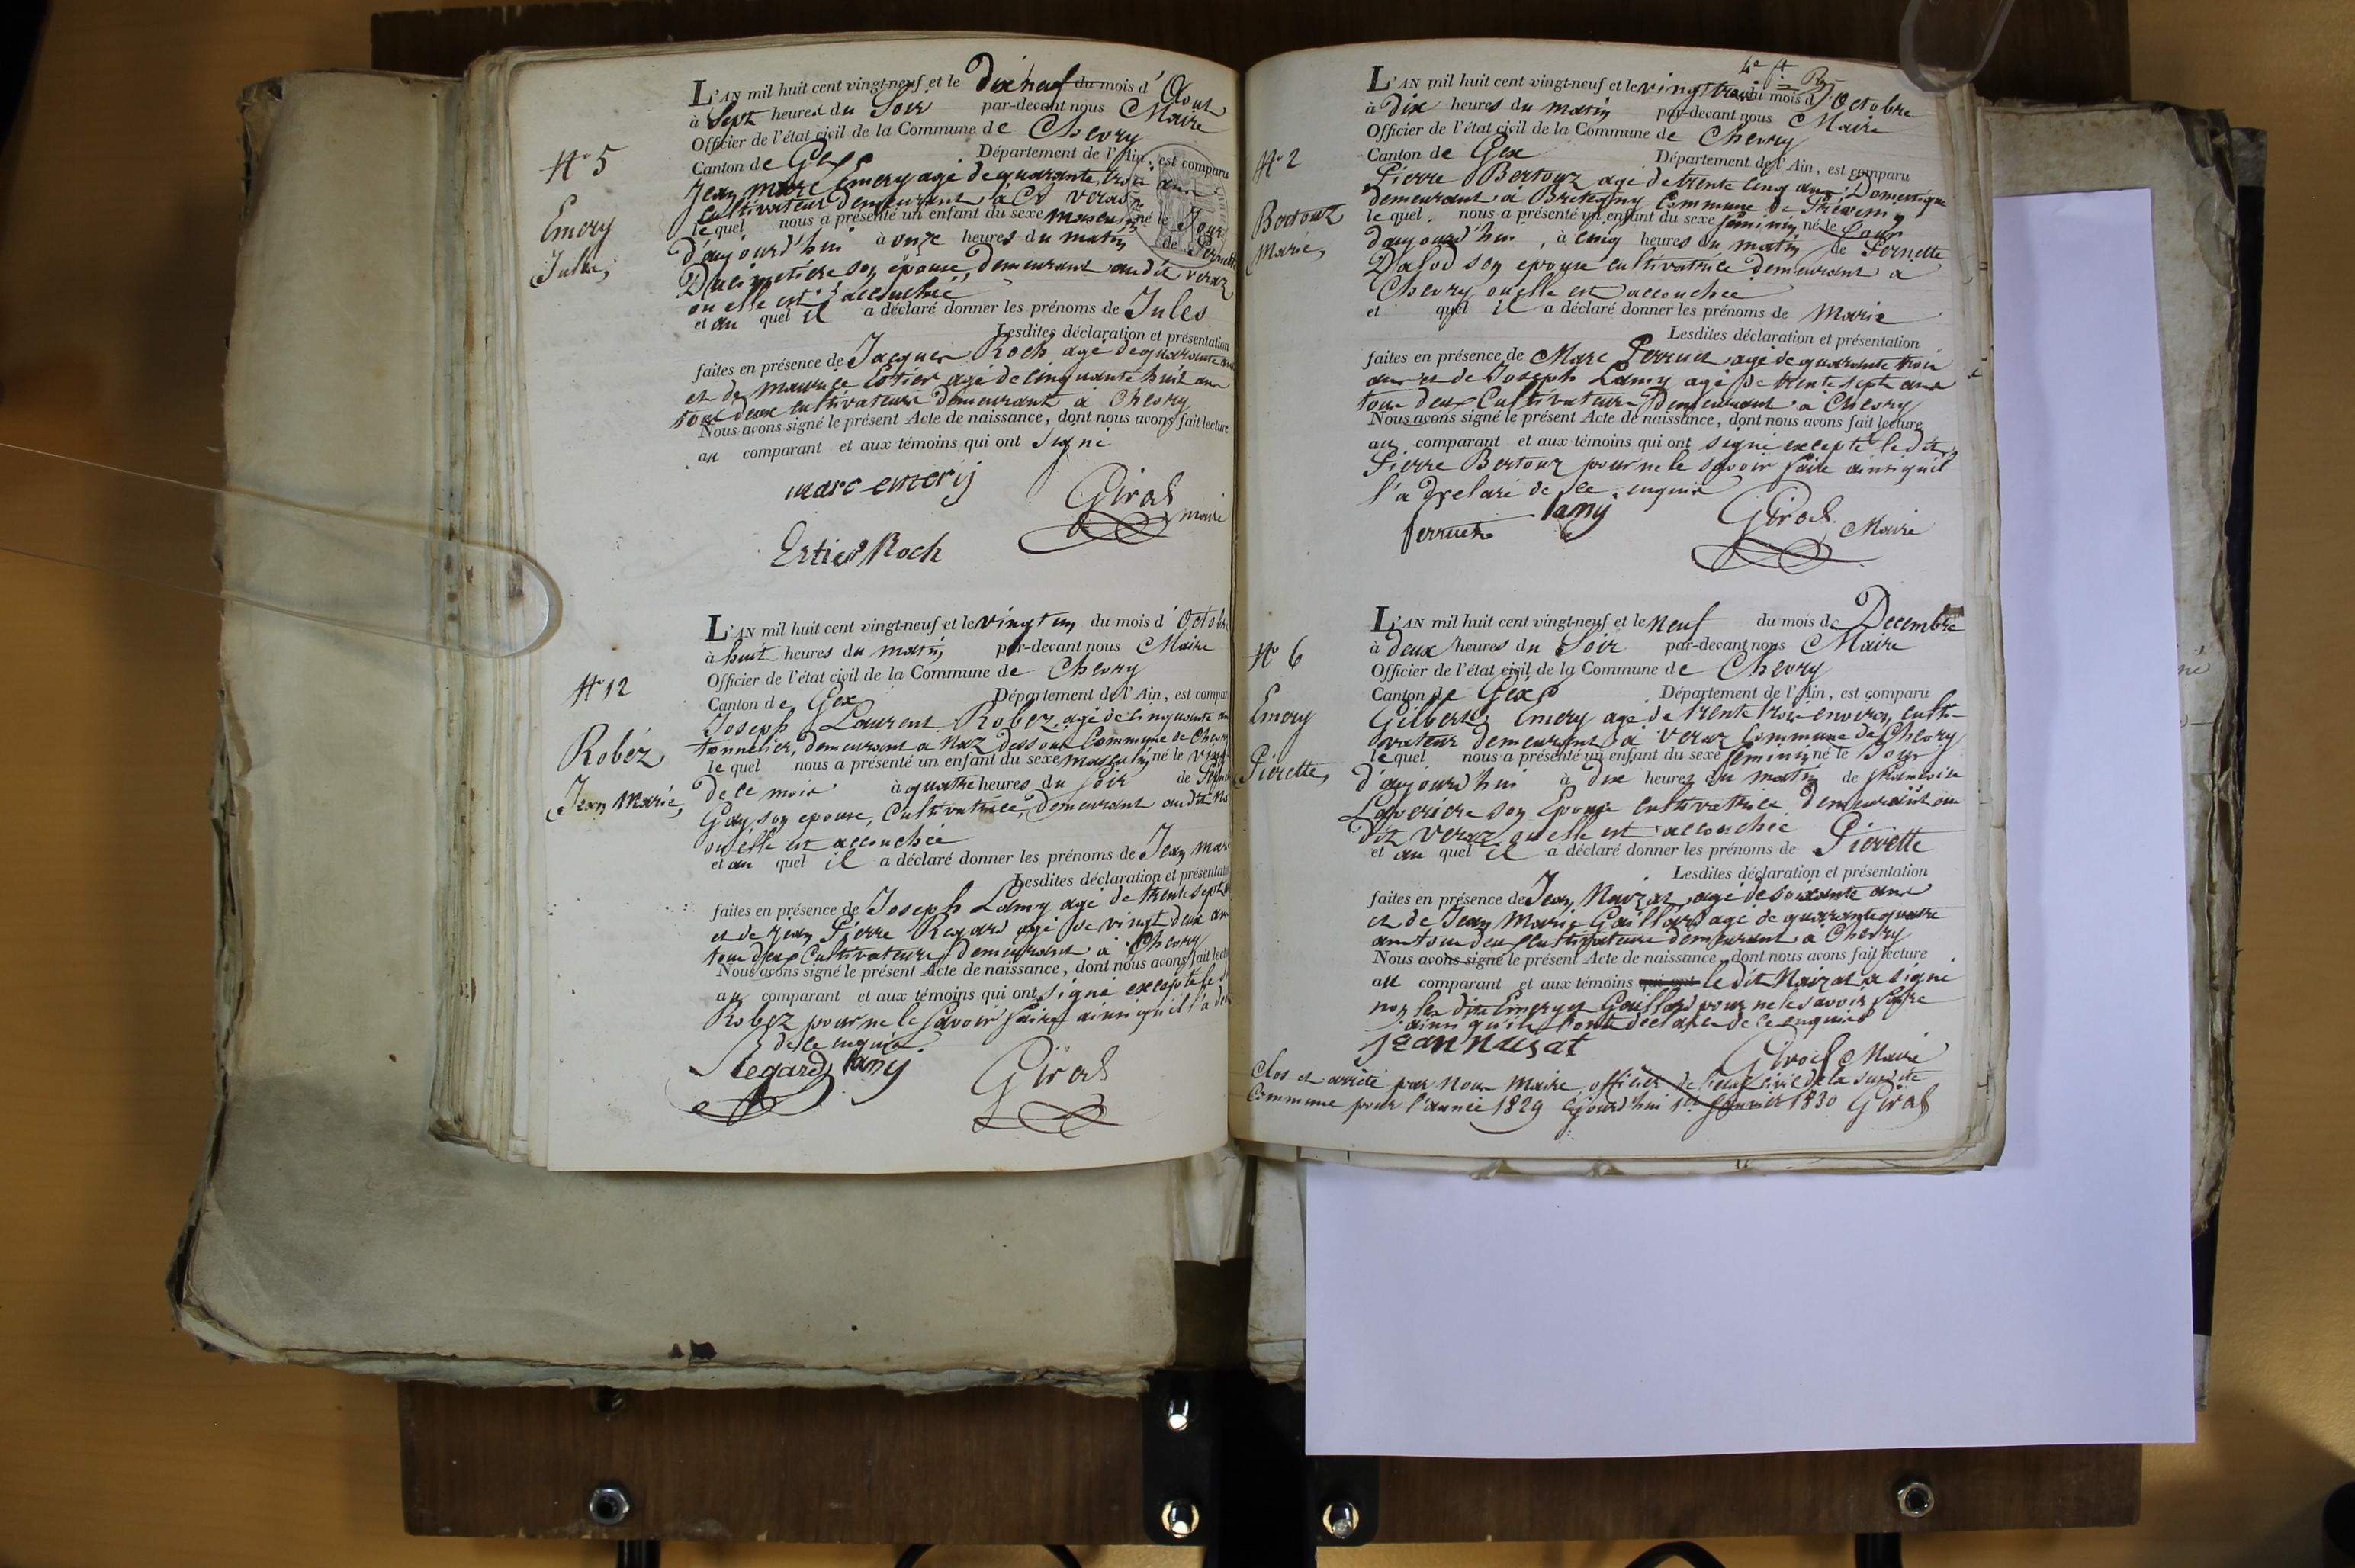 L'AN mil huit cent vingt-neuf et le Dix neuf du mois d'Aout
à Sept heures du Soir par-devant nous Maire
Officier de l'état civil de la Commune de Chevry
Canton de Gex Département de l'Ain, est comparu
N° 5
Emery
Jules,
Jean Marc Emery agé de quarante trois ans
Cultivateur demeurant à Veraz
lequel nous a présenté un enfant du sexe masculin né le Jour
d'aujourd'hui à onze heures du matin de Pernette
Ducimetière son épouse, demeurant audit Veraz
ou elle est accouchée
et au quel il a déclaré donner les prénoms de Jules
Lesdites déclaration et présentation
faites en présence de Jacques Roch agé de quarante ans
et de Maurice Estier agé de cinquante huit ans
tous deux cultivateurs demeurant à Chevry
Nous avons signé le présent Acte de naissance, dont nous avons fait lecture
au comparant et aux témoins qui ont Signé
marc emerij
Girod maire
Estier Roch
L'AN mil huit cent vingt-neuf et le vingt un du mois d'Octob
à huit heures du matin par-devant nous Maire
Officier de l'état civil de la Commune de Chevry
Canton de Gex Département de l'Ain, est compar
N° 12
Robéz
Jean Marie,
Joseph Laurent Robez, agé de cinquante an
tonnelier, demeurant a Naz dessous Commune de Chevr
lequel nous a présenté un enfant du sexe masculin né le vingt
de ce mois à quatre heures du soir de
Gay son epouse, Cultivatrice, demeurant au dit Na
ou elle est accouchée
et au quel il a déclaré donner les prénoms de Jean mar
Lesdites déclaration et présentati
faites en présence de Joseph Lamy agé de trente sept
et de Jean Pierre Regard agé de vingt deux an
tous deux Cultivateurs demeurant à Chevry
Nous avons signé le présent Acte de naissance, dont nous avons fait lect
au comparant et aux témoins qui ont signé excepté le
Robez pour ne le savoir faire ainsi qu'il l'a
de ce enquis
Regard, lamy
Girod
L'AN mil huit cent vingt-neuf et le vingt trois du mois d'Octobre
à dix heures du matin par-devant nous Maire
Officier de l'état civil de la Commune de Chevry
Canton de Gex Département de l'Ain, est comparu
N° 2
Bertouz
Marie,
Pierre Bertouz agé de trente cinq ans Domestique
demeurant à Bretigny Commune de Prévessin
lequel nous a présenté un enfant du sexe féminin né le Jour
d'aujourd'hui, à cinq heures du matin de Pernette
Dalod son epouse cultivatrice demeurant a
Chevry ou elle est accouchée
et quel il a déclaré donner les prénoms de Marie
Lesdites déclaration et présentation
faites en présence de Marc Perruet agé de quarante trois
ans et de Joseph Lamy agé de trente sept ans
tous deux Cultivateurs demeurant à Chevry
Nous avons signé le présent Acte de naissance, dont nous avons fait lecture
au comparant et aux témoins qui ont signé excepté le dit
Pierre Bertouz pour ne le savoir faire ainsi qu'il
l'a declaré de ce enquis
lamy
Girod Maire
L'AN mil huit cent vingt-neuf et le neuf du mois de Decembre
à deux heures du Soir par-devant nous Maire
Officier de l'état civil de la Commune de Chevry
Canton de Gex Département de l'Ain, est comparu
N° 6
Emery
Pierette,
Gilbert Emery agé de trente trois environ, culti-
vateur demeurant à Veraz Commune de Chevry
lequel nous a présenté un enfant du sexe féminin né le Jour
d'aujourd'hui à dix heures du matin de
son Epouse cultivatrice demeurant au
dit Veraz ou elle est accouchée
et au quel il a déclaré donner les prénoms de Pierette
Lesdites déclaration et présentation
faites en présence de Jean Naizat, agé de soixante ans
et de Jean Marie Gaillard agé de quarante quatre
ans tous deux cultivateurs demeurant à Chevry
Nous avons signé le présent Acte de naissance, dont nous avons fait lecture
au comparant et aux témoins qui ont le dit Naizat a signé
non les dits Emery et Gaillard pour ne le savoir faire
ainsi qu'ils l'ont déclaré de ce enquis
jean naisat
Girod Maire
Clos et arrêté par Nous Maire officier de l'état civil de la susdite
Commune pour l'année 1829 cejourd'hui 1er Janvier 1830 Girod